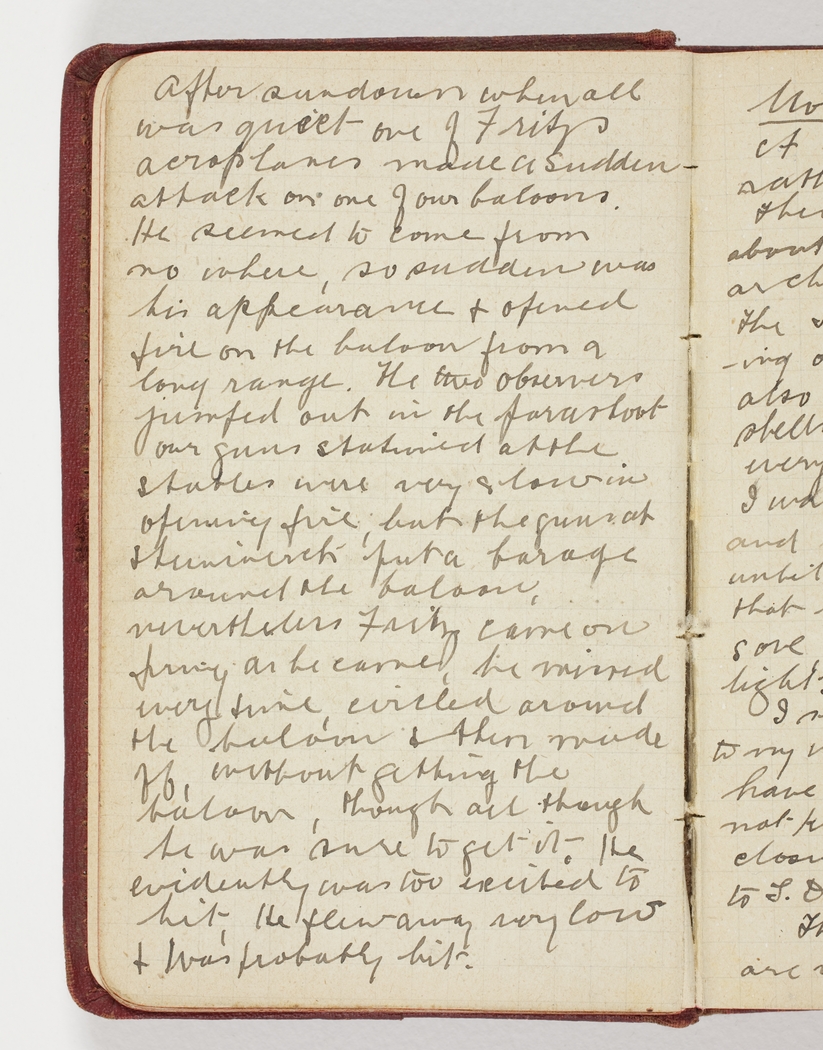 After sundown when all
was quiet one of Fritzs
aeroplanes made a sudden-
attack on one of our baloons.
He seemed to come from
no where, so sudden was
his appearance & opened
fire on the baloon from a
long range. The two observers
jumped out in the parashoot
our guns stationed at the
stables were very slow in
opening fire, but the guns at
put a barage
around the baloon,
nevertheless Fritz came on
firing as he came, he missed
every time, circled around
the baloon & then made
off, without getting the
baloon, though all though
he was sure to get it. He
evidently was too excited to
hit. He flew away very low
& was probably hit.
A
the
about
The
-ing o
also
shells
every
I wa
and
until
that
gave
light
I
to my
have
not k
close
to S. D
are